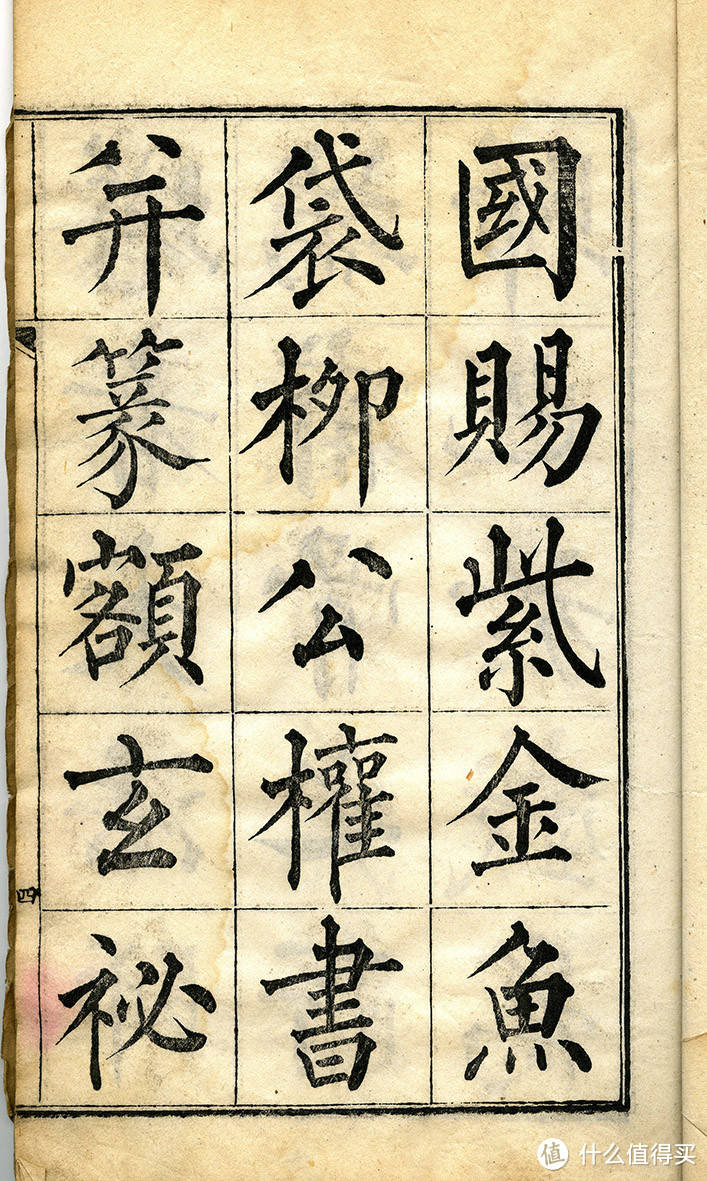 國賜紫金魚
袋柳公權書
并篆額玄祕
四
值 什么值得买